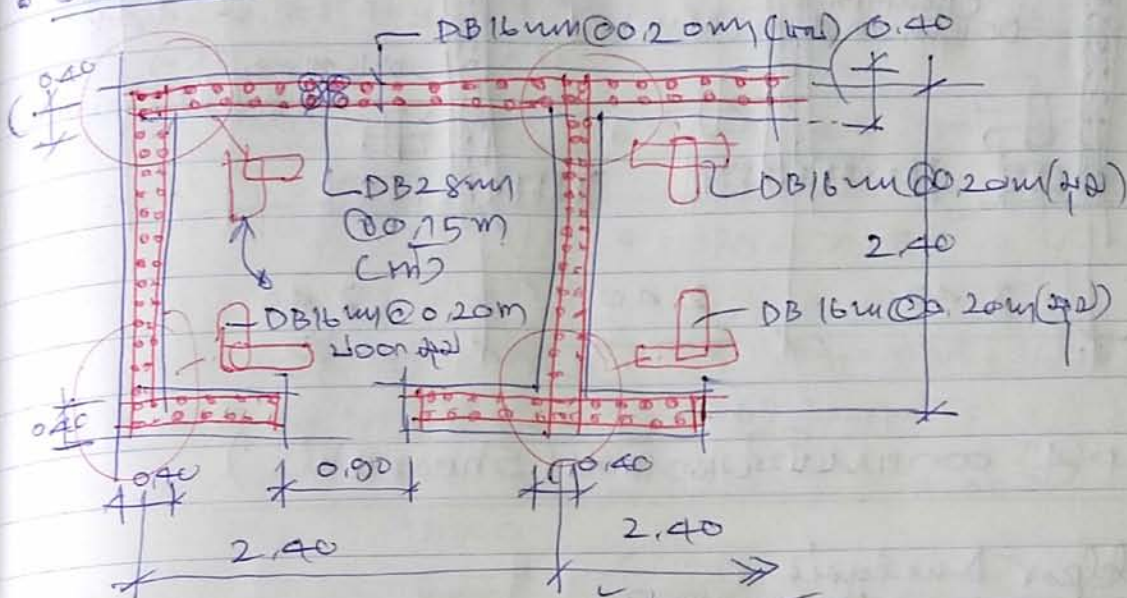 DB16mm@0.20m
0.40
0.40
DB28mm
@0.15m
DB16mm@0.20m(มุม)
2.40
DB16mm@0.20m
DB16mm@0.20m(มุม)
0.40
0.40
0.90
0.40
2.40
2.40